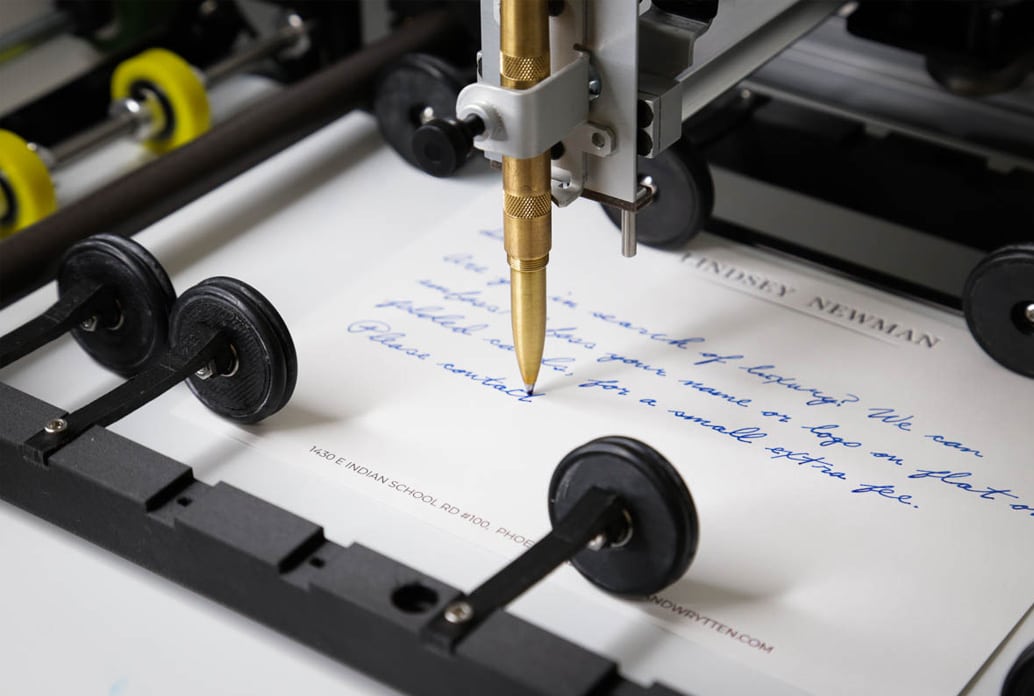 LINDSEY NEWMAN
Are in search of luxury? We can
your name or logo on flat
folded for a small extra fee.
Please contact
1430 E INDIAN SCHOOL RD #100, PHOE
ANDWRYTTEN.COM